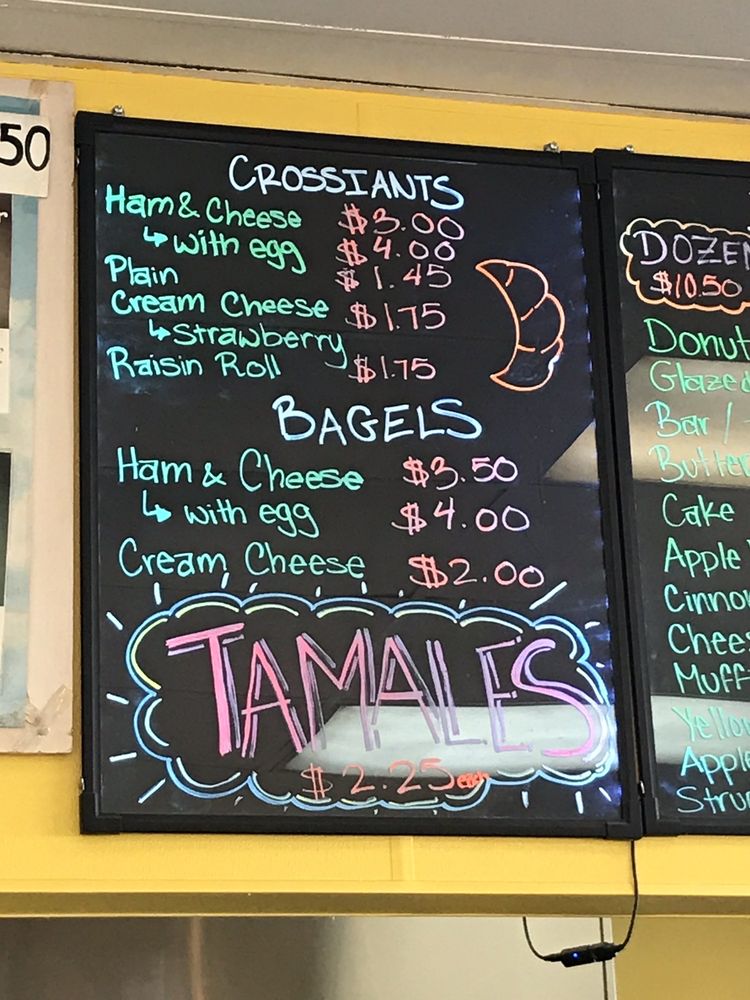 50
CROSSIANTS
Ham & Cheese $3.00
↳ with egg $4.00
Plain $1.45
Cream Cheese $1.75
↳ Strawberry
Raisin Roll $1.75
BAGELS
Ham & Cheese $3.50
↳ with egg $4.00
Cream Cheese $2.00
TAMALES
$2.25 each
DOZEN
$10.50
Donut
Glazed
Bar /
Butter
Cake
Apple
Cinnon
Chees
Muff
Yellow
Apple
Stru